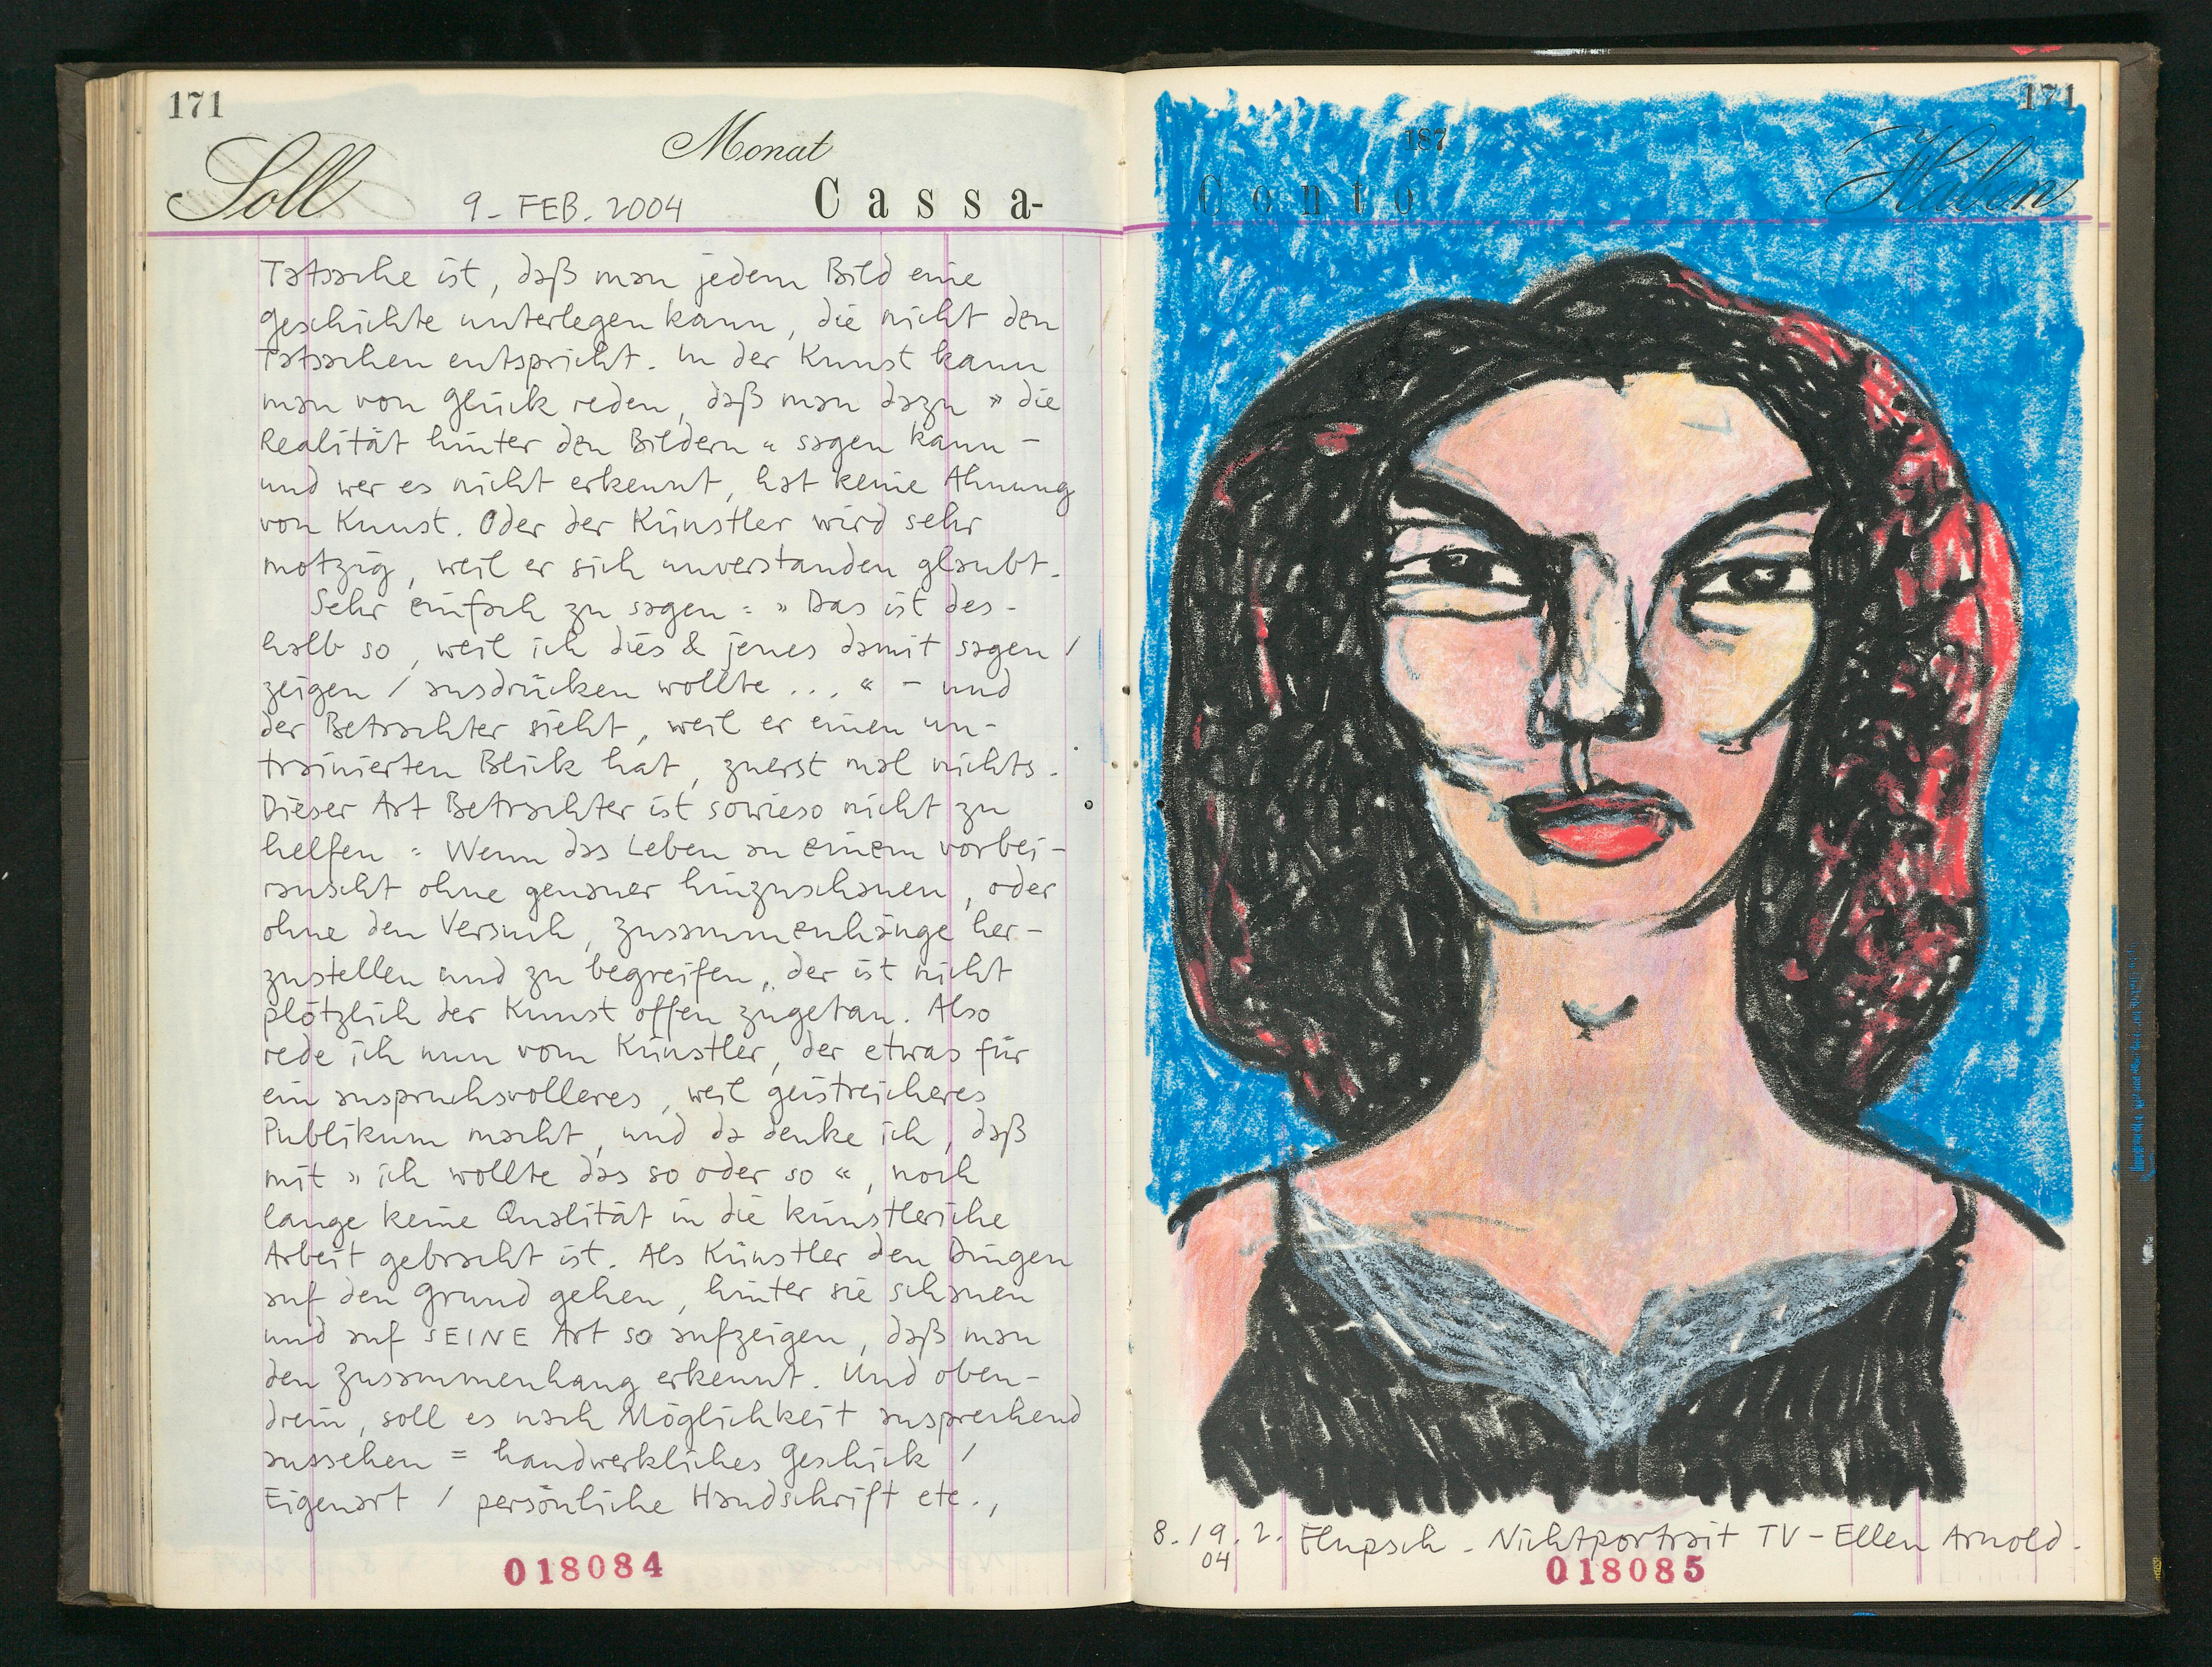 171
Soll
Monat
9. FEB. 2004
Cassa-
Tatsache ist, daß man jedem Bild eine
Geschichte unterlegen kann, die nicht den
Tatsachen entspricht. In der Kunst kann
man von Glück reden, daß man dazu » die
Realität hinter den Bildern « sagen kann –
und wer es nicht erkennt, hat keine Ahnung
von Kunst. Oder der Künstler wird sehr
motzig, weil er sich unverstanden glaubt.
Sehr einfach zu sagen : » Das ist des-
halb so, weil ich dies & jenes damit sagen /
zeigen / ausdrücken wollte ... « – und
der Betrachter sieht, weil er einen un-
trainierten Blick hat, zuerst mal nichts.
Dieser Art Betrachter ist sowieso nicht zu
helfen : Wenn das Leben an einem vorbei-
rauscht ohne genauer hinzuschauen, oder
ohne den Versuch, Zusammenhänge her-
zustellen und zu begreifen, der ist nicht
plötzlich der Kunst offen zugetan. Also
rede ich nun vom Künstler, der etwas für
ein anspruchsvolleres, weil geistreicheres
Publikum macht, und da denke ich, daß
mit » ich wollte das so oder so «, noch
lange keine Qualität in die künstleriche
Arbeit gebracht ist. Als Künstler den Dingen
auf den Grund gehen, hinter sie schauen
und auf SEINE Art so aufzeigen, daß man
den Zusammenhang erkennt. Und oben-
drein, soll es nach Möglichkeit ansprechend
aussehen = handwerkliches Geschick /
Eigenart / persönliche Handschrift etc.,
018084
171
187
Conto
Haben
8./9.2. Flupsch - Nichtportrait TV – Ellen Arnold.
04
018085